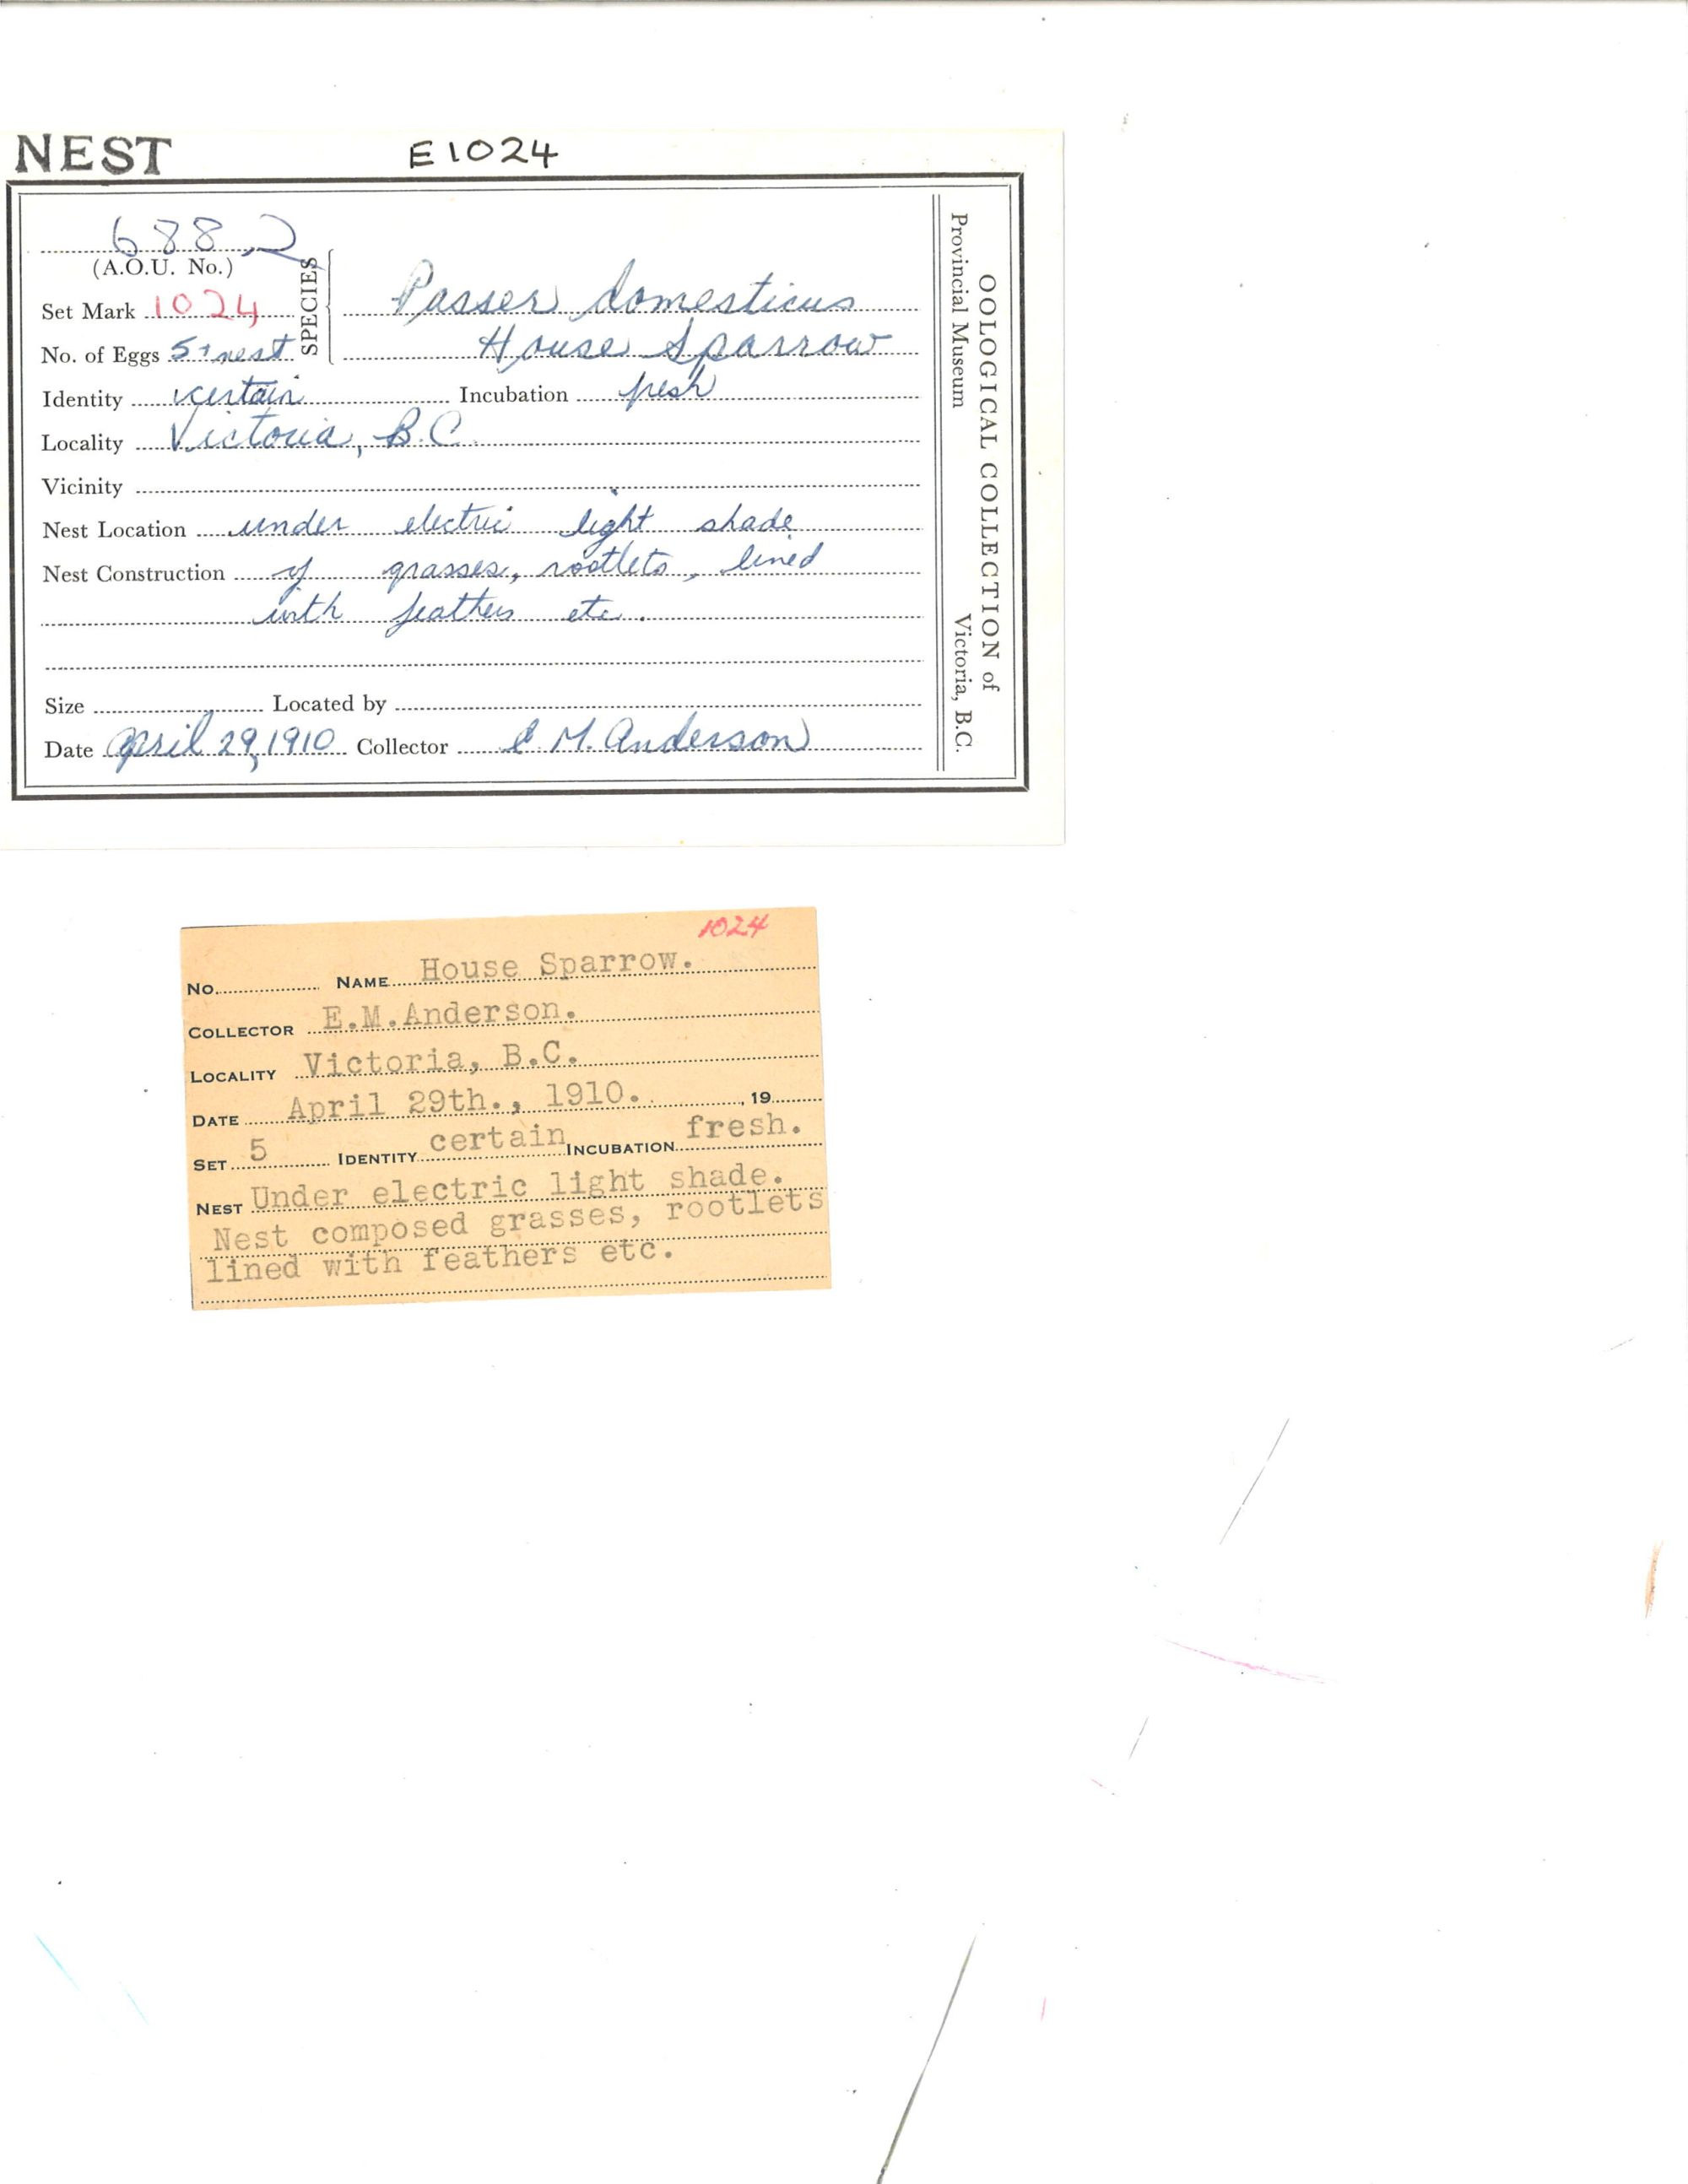 NEST E1024
688.2
(A.O.U. No.)
SPECIES
Set Mark 1024 Passer domesticus
No. of Eggs 5+nest House Sparrow
Identity certain Incubation fresh
Locality Victoria, B.C.
Vicinity
Nest Location under electric light shade
Nest Construction of grasses, rootlets, lined
with feathers etc.
Size Located by
Date April 29, 1910 Collector E. M. Anderson
OOLOGICAL COLLECTION of
Provincial Museum Victoria, B.C.
1024
No. NAME House Sparrow.
COLLECTOR E.M.Anderson.
LOCALITY Victoria, B.C.
DATE April 29th., 1910. , 19
SET 5 IDENTITY certain INCUBATION fresh.
NEST Under electric light shade.
Nest composed grasses, rootlets
lined with feathers etc.